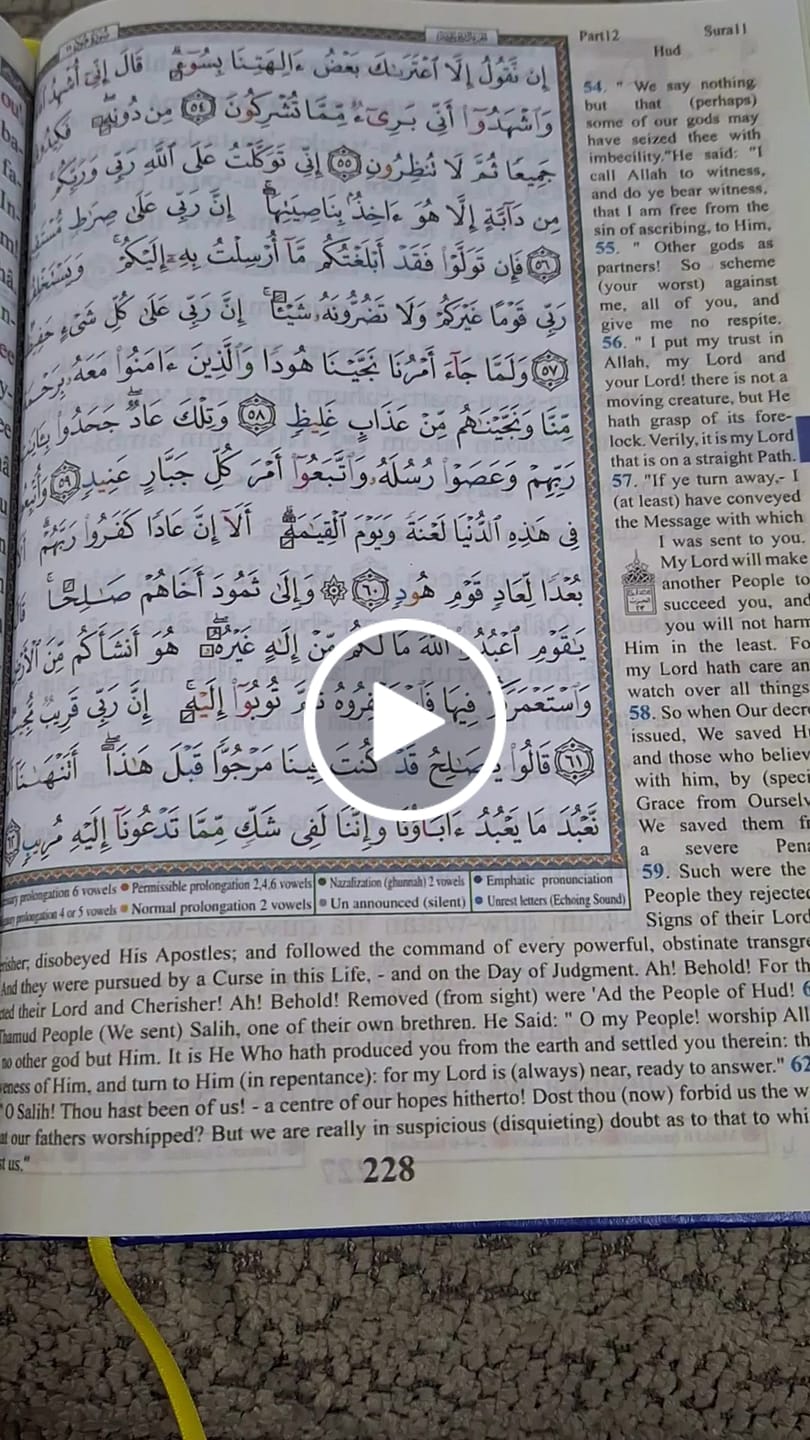 Part12 Hud Sura11
إِن نَّقُولُ إِلَّا ٱعْتَرَىٰكَ بَعْضُ ءَالِهَتِنَا بِسُوٓءٍ قَالَ إِنِّىٓ أُشْهِدُ
وَٱشْهَدُوٓا۟ أَنِّى بَرِىٓءٌ مِّمَّا تُشْرِكُونَ ٥٤ مِن دُونِهِۦ
جَمِيعًا ثُمَّ لَا تُنظِرُونِ ٥٥ إِنِّى تَوَكَّلْتُ عَلَى ٱللَّهِ رَبِّى وَرَبِّكُم
مِن دَآبَّةٍ إِلَّا هُوَ ءَاخِذٌۢ بِنَاصِيَتِهَآ إِنَّ رَبِّى عَلَىٰ صِرَٰطٍ
٥٦ فَإِن تَوَلَّوْا۟ فَقَدْ أَبْلَغْتُكُم مَّآ أُرْسِلْتُ بِهِۦٓ إِلَيْكُمْ
رَبِّى قَوْمًا غَيْرَكُمْ وَلَا تَضُرُّونَهُۥ شَيْـًٔا إِنَّ رَبِّى عَلَىٰ كُلِّ شَىْءٍ
٥٧ وَلَمَّا جَآءَ أَمْرُنَا نَجَّيْنَا هُودًا وَٱلَّذِينَ ءَامَنُوا۟ مَعَهُۥ
مِّنَّا وَنَجَّيْنَٰهُم مِّنْ عَذَابٍ غَلِيظٍ ٥٨ وَتِلْكَ عَادٌ جَحَدُوا۟
رَبِّهِمْ وَعَصَوْا۟ رُسُلَهُۥ وَٱتَّبَعُوٓا۟ أَمْرَ كُلِّ جَبَّارٍ عَنِيدٍ ٥٩
فِى هَٰذِهِ ٱلدُّنْيَا لَعْنَةً وَيَوْمَ ٱلْقِيَٰمَةِ أَلَآ إِنَّ عَادًا كَفَرُوا۟ رَبَّهُمْ
بُعْدًا لِّعَادٍ قَوْمِ هُودٍ ٦٠ وَإِلَىٰ ثَمُودَ أَخَاهُمْ صَٰلِحًا
يَٰقَوْمِ ٱعْبُدُوا۟ ٱللَّهَ مَا لَكُم مِّنْ إِلَٰهٍ غَيْرُهُۥ هُوَ أَنشَأَكُم مِّنَ
وَٱسْتَعْمَرَكُمْ فِيهَا ثُمَّ تُوبُوٓا۟ إِلَيْهِ إِنَّ رَبِّى قَرِيبٌ
٦١ قَالُوا۟ يَٰصَٰلِحُ قَدْ كُنتَ فِينَا مَرْجُوًّا قَبْلَ هَٰذَآ أَتَنْهَىٰنَآ
نَّعْبُدَ مَا يَعْبُدُ ءَابَآؤُنَا وَإِنَّنَا لَفِى شَكٍّ مِّمَّا تَدْعُونَآ إِلَيْهِ مُرِيبٍ
prolongation 6 vowels Permissible prolongation 2,4,6 vowels Nazalization (ghunnah) 2 vowels Emphatic pronunciation
prolongation 4 or 5 vowels Normal prolongation 2 vowels Un announced (silent) Unrest letters (Echoing Sound)
54. " We say nothing
but that (perhaps)
some of our gods may
have seized thee with
imbecility."He said: "I
call Allah to witness,
and do ye bear witness,
that I am free from the
sin of ascribing, to Him,
55. " Other gods as
partners! So scheme
(your worst) against
me, all of you, and
give me no respite.
56. " I put my trust in
Allah, my Lord and
your Lord! there is not a
moving creature, but He
hath grasp of its fore-
lock. Verily, it is my Lord
that is on a straight Path.
57. "If ye turn away,- I
(at least) have conveyed
the Message with which
I was sent to you.
My Lord will make
another People to
succeed you, and
you will not harm
Him in the least. For
my Lord hath care an
watch over all things
58. So when Our decre
issued, We saved Hu
and those who believ
with him, by (speci
Grace from Ourselv
We saved them fr
a severe Pena
59. Such were the
People they rejected
Signs of their Lord
disobeyed His Apostles; and followed the command of every powerful, obstinate transgre
And they were pursued by a Curse in this Life, - and on the Day of Judgment. Ah! Behold! For th
their Lord and Cherisher! Ah! Behold! Removed (from sight) were 'Ad the People of Hud! 6
Thamud People (We sent) Salih, one of their own brethren. He Said: " O my People! worship All
no other god but Him. It is He Who hath produced you from the earth and settled you therein: th
of Him, and turn to Him (in repentance): for my Lord is (always) near, ready to answer." 62
"O Salih! Thou hast been of us! - a centre of our hopes hitherto! Dost thou (now) forbid us the w
our fathers worshipped? But we are really in suspicious (disquieting) doubt as to that to whi
us."
228